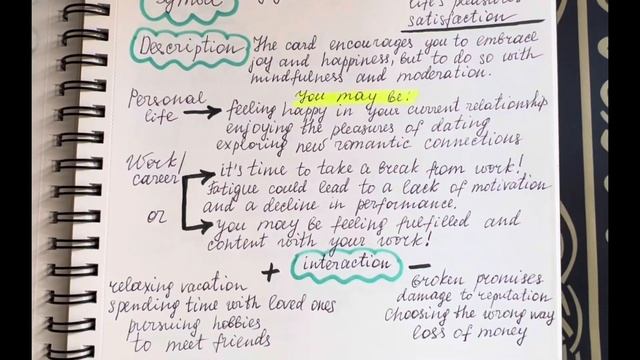 Symbol
life's pleasures
satisfaction
Description
The card encourages you to embrace
joy and happiness, but to do so with
mindfulness and moderation.
Personal
life
You may be:
feeling happy in your current relationship
enjoying the pleasures of dating
exploring new romantic connections
Work/
career
or
it's time to take a break from work!
Fatigue could lead to a lack of motivation
and a decline in performance.
you may be feeling fulfilled and
content with your work!
+ interaction –
relaxing vacation
spending time with loved ones
pursuing hobbies
to meet friends
broken promises
damage to reputation
choosing the wrong way
loss of money